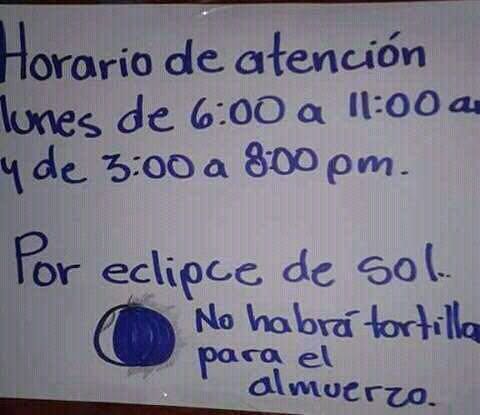 Horario de atención
lunes de 6:00 a 11:00 a
y de 3:00 a 8:00 pm.
Por eclipce de sol..
No habrá tortilla
para el
almuerzo.